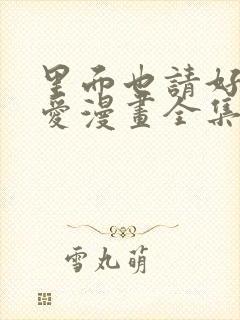 里而也請好
愛漫畫全集
雪丸萌